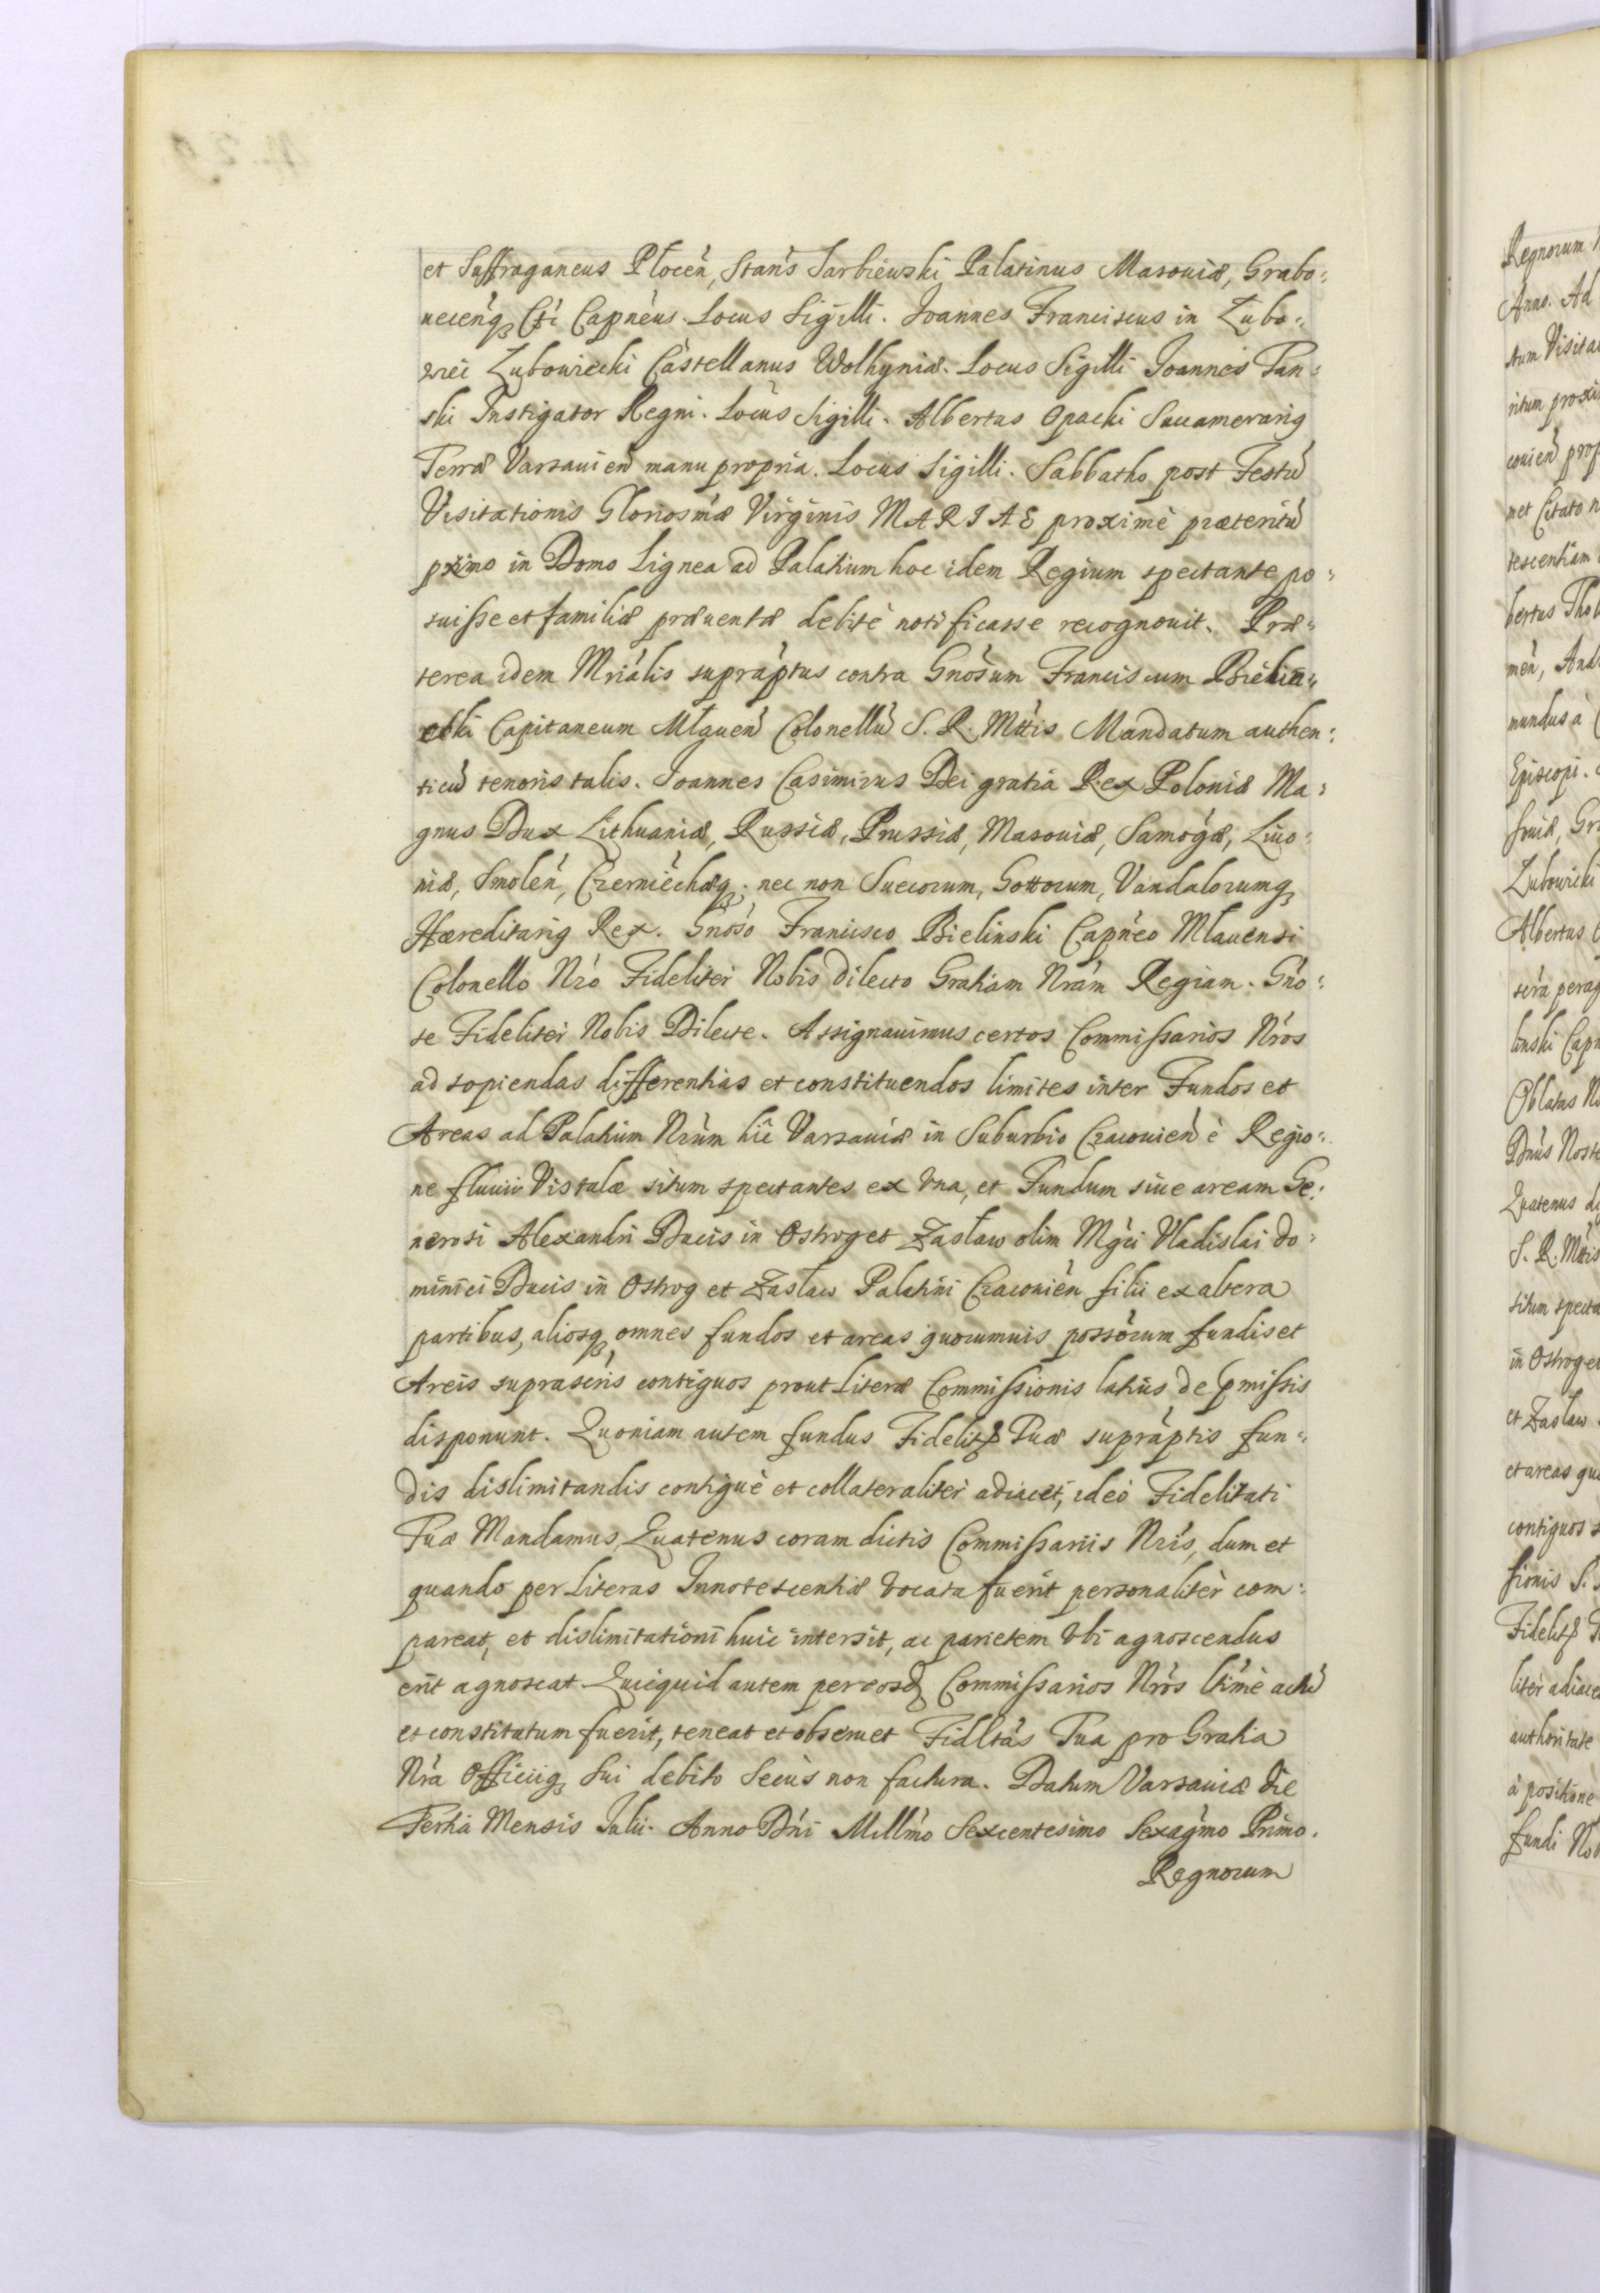 et Suffraganeus Płocen̄, Stan̄s Sarbiewski Palatinus Masouiæ, Grabo=
uecen̄q; Capnēus. Locus Sigilli. Joannes Franciscus in Łubo=
wiec Łubowiecki Castellanus Wolhyniæ. Locus Sigilli Joannes Tan=
ski Instigator Regni. Locus Sigilli. Albertus Opacki Succamerarig
Terræ Varsauien̄ manu propria. Locus Sigilli. Sabbatho post Festū
Visitationis Gloriosm̄æ Virginis MARIAE proximè præteritū
pximo in Domo Lignea ad Palatium hoc idem Regium spectante po=
suisse et familiæ præuentæ debitè notificasse recognouit. Præ=
terea idem Mriālis suprāptus contra Gnōsum Franciscum Bielin=
ski Capitaneum Mlauen̄ Colonellū S. R. Mttis Mandatum authen=
ticū tenoris talis. Joannes Casimirus Dei gratia Rex Poloniæ Ma=
gnus Dux Lithuaniæ, Russiæ, Prussiæ, Masouiæ, Samogæ, Liuo=
niæ, Smolen̄, Czerniēchæq; nec non Suecorum, Gottorum, Vandalorumq;
Hæreditarig Rex. Gnōso Francisco Bielinski Capnēo Mlauensi
Colonello Nrō Fideliter Nobis dilecto Gratiam Nrām Regiam. Gnō=
se Fideliter Nobis Dilecte. Assignauimus certos Commissarios Nrōs
ad sopiendas differentias et constituendos limites inter Fundos et
Areas ad Palatium Nrūm hic Varsauiæ in Suburbio Cracouien̄ è Regio=
ne fluuii Vistulæ situm spectantes ex vna, et Fundum siue aream Ge=
nerosi Alexandri Ducis in Ostrog et Zasław olim Mgci Vladislai Do=
minici Ducis in Ostrog et Zasław Palatini Cracouien̄ filii ex altera
partibus, aliosq; omnes fundos et areas quorumuis possōrum fundis et
Areis suprascrīs contiguos prout Literæ Commissionis latiùs de pmissis
disponunt. Quoniam autem fundus Fidelit Tuæ suprāptis fun=
dis dislimitandis contiguè et collateraliter adiacet, ideò Fidelitati
Tuæ Mandamus, Quatenus coram dictis Commissariis Nrīs, dum et
quando per Literas Innotescentiæ vocata fuerit personaliter com=
pareat, et dislimitationi huic intersit, ac parietem vbi agnoscendus
erit agnoscat Quicquid autem per eosd Commissarios Nrōs ltimè actū
et constitutum fuerit, teneat et obseruet Fidltās Tua pro Gratia
Nrā Officiiq; Sui debito Secùs non factura. Datum Varsauiæ die
Tertia Mensis Julii. Anno Dni Millm̄o Sexcentesimo Sexagm̄o Primo.
Regnorum
Regnorum
Anno. Ad
tum Visita
ritum proxi
couien̄ prop
met Citato
tescentiam
bertus
men̄, And
mundus à
Episcopi.
souiæ, Gra
Łubowiecki
Albertus
perag
linski Cap
Oblatus
Dnūs Nost
Quatenus
S. R. Mttis
situm specta
in Ostrog et
et Zasław
et areas qu
contiguos
sionis S.
Fidelit
liter adiace
authoritate
à positione
fundi